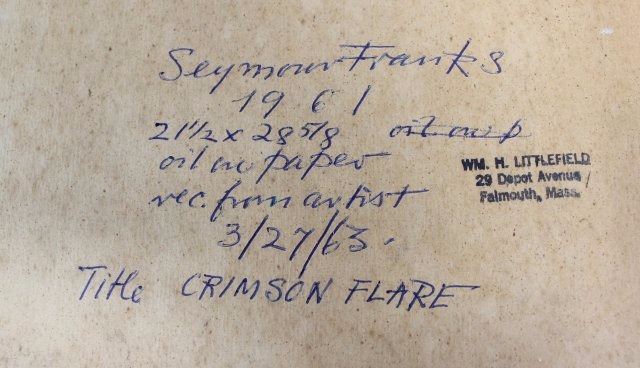 Seymour Franks
1961
21 1/2 x 28 5/8 oil on p
oil on paper
rec. from artist
3/27/63.
Title CRIMSON FLARE
WM. H. LITTLEFIELD
29 Depot Avenue
Falmouth, Mass.